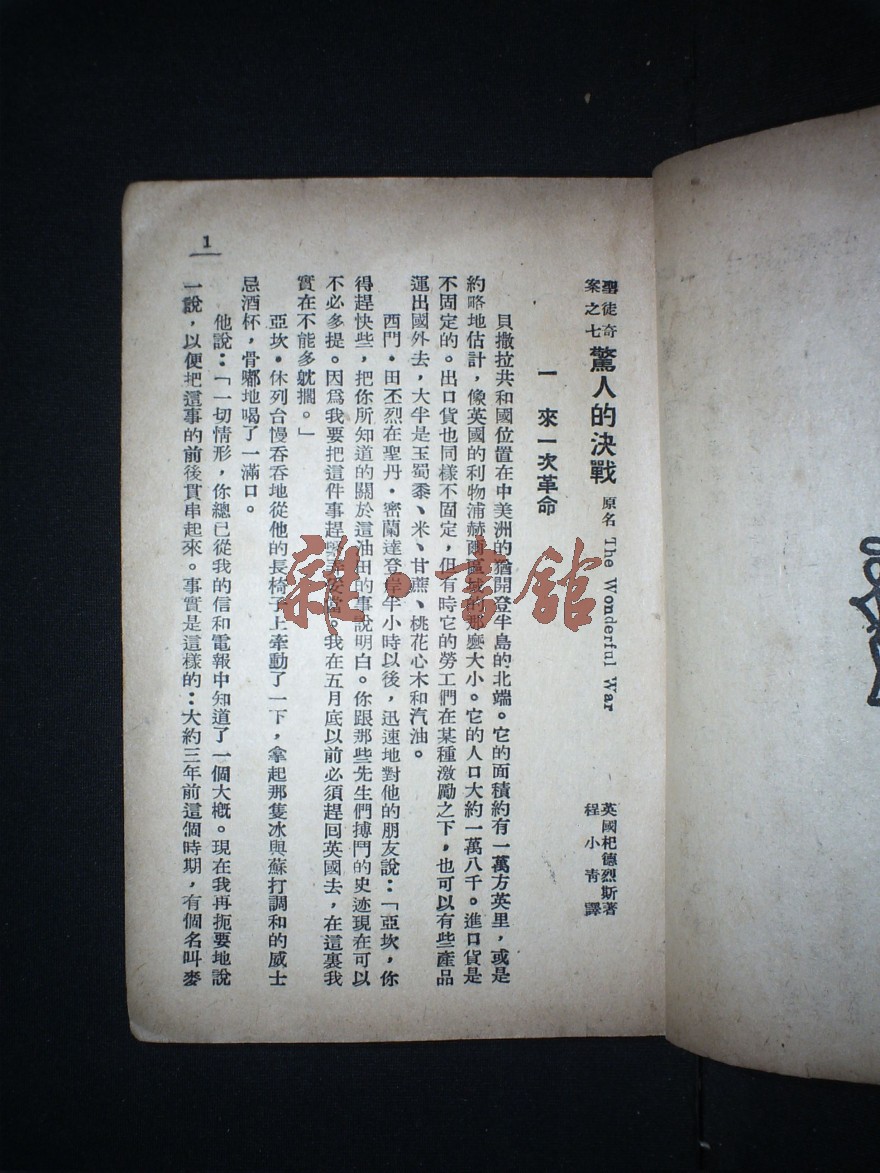 聖徒奇案之七 驚人的決戰 原名 The Wonderful War 英國杞德烈斯著 程小青譯
一 來一次革命
貝撒拉共和國位置在中美洲的猶開登半島的北端。它的面積約有一萬方英里,或是
約略地估計,像英國的利物浦赫爾區域的那麼大小。它的人口大約一萬八千。進口貨是
不固定的。出口貨也同樣不固定,但有時它的勞工們在某種激勵之下,也可以有些產品
運出國外去,大半是玉蜀黍、米、甘蔗、桃花心木和汽油。
西門·田丕烈在聖丹·密蘭達登岸半小時以後,迅速地對他的朋友說:「亞坎,你
得趕快些,把你所知道的關於這油田的事說明白。你跟那些先生們搏鬥的史迹現在可以
不必多提。因爲我要把這件事趕緊弄妥當。我在五月底以前必須趕回英國去,在這裏我
實在不能多躭擱。」
亞坎·休列台慢吞吞地從他的長椅子上牽動了一下,拿起那隻冰與蘇打調和的威士
忌酒杯,骨嘟地喝了一滿口。
他說:「一切情形,你總已從我的信和電報中知道了一個大槪。現在我再扼要地說
一說,以便把這事的前後貫串起來。事實是這樣的:大約三年前這個時期,有個名叫麥
1
雜·書館